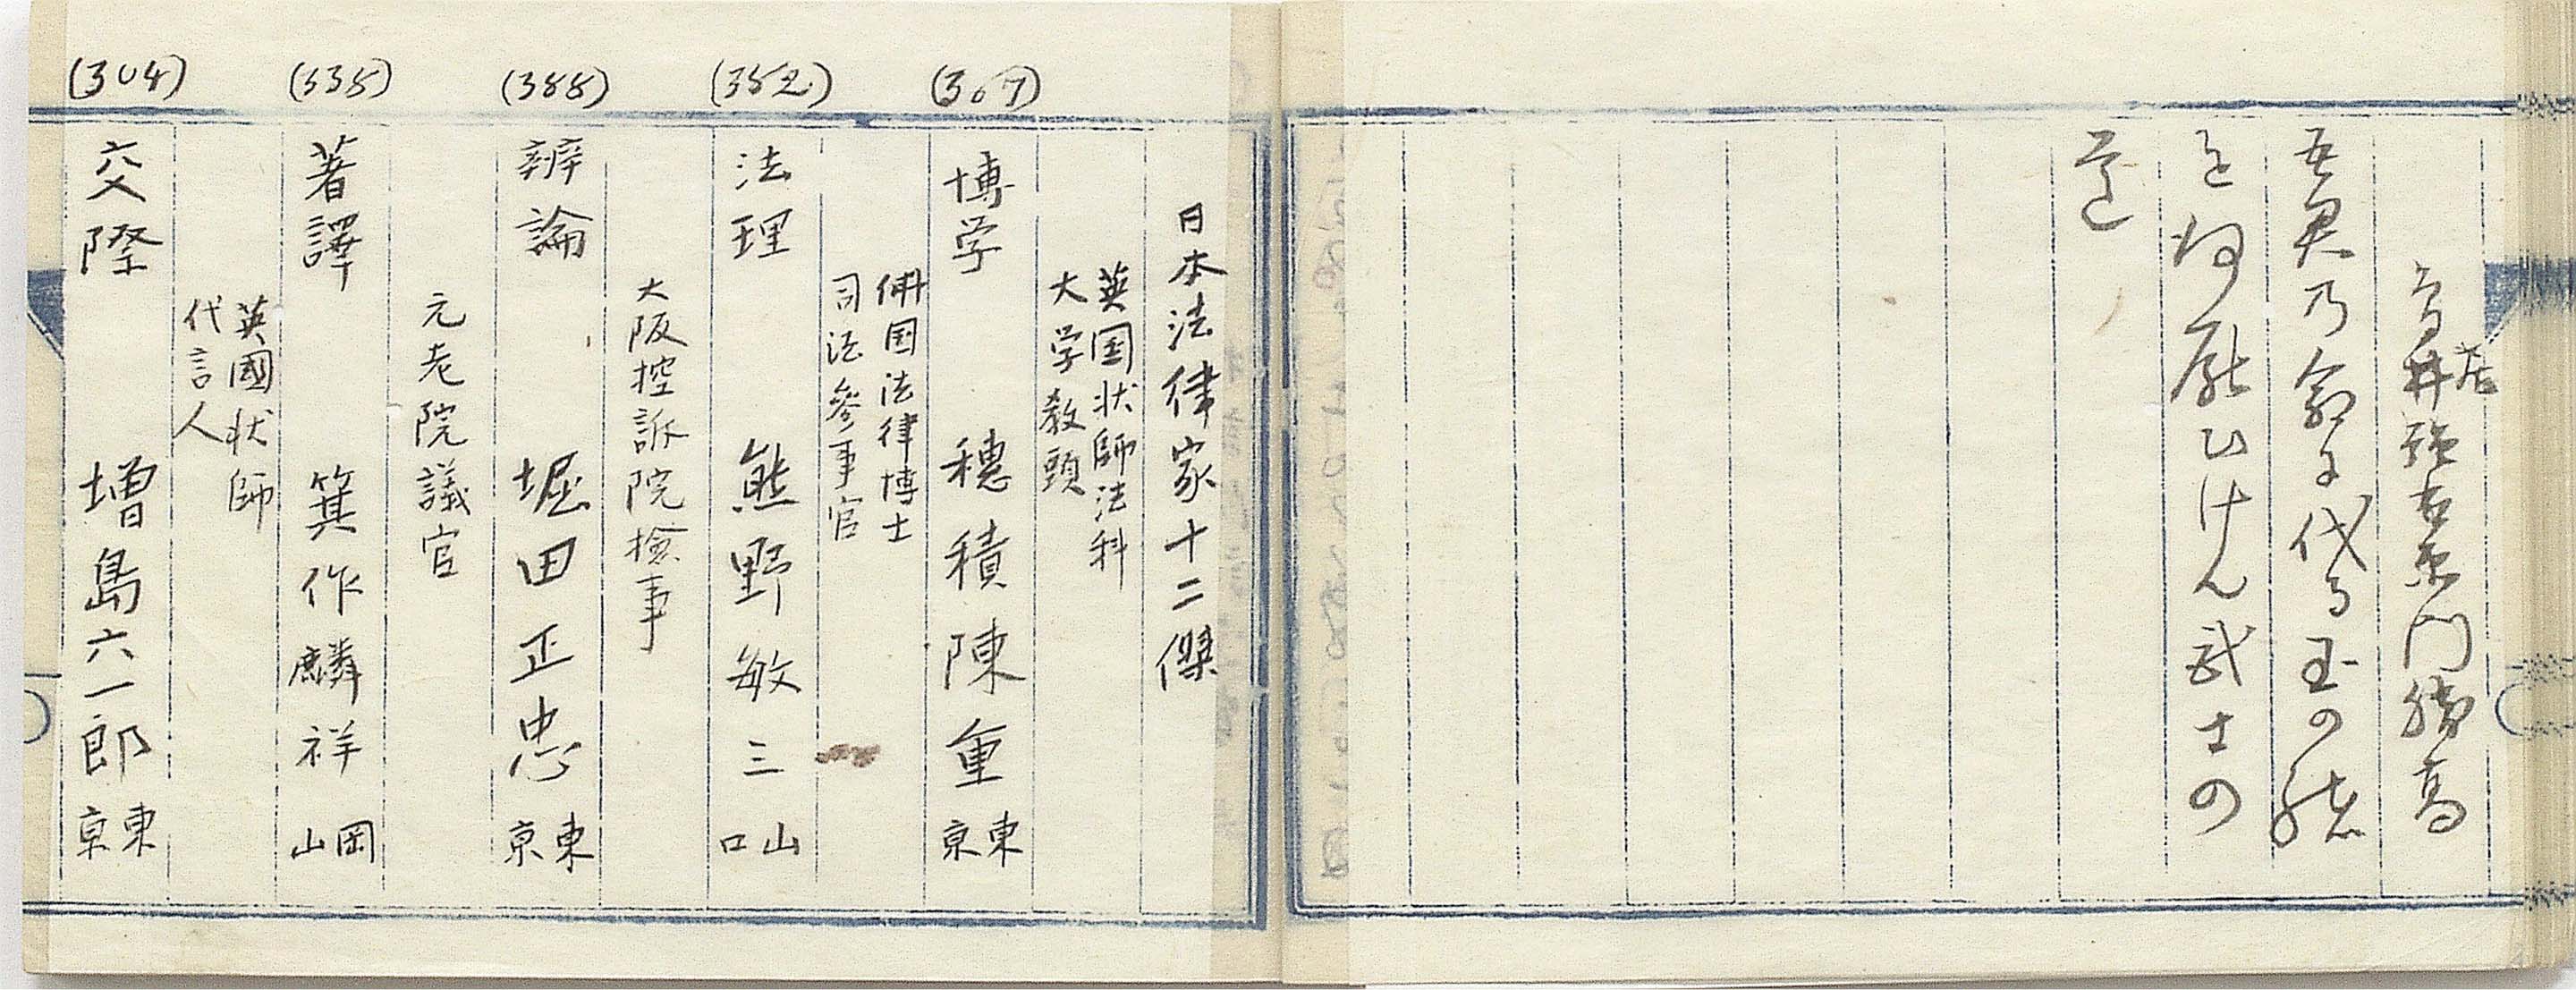 鳥居強右衛門勝高
吾君乃命に代る玉の緒
を何厭ひけん武士の
道
日本法律家十二傑
英国状師法科
大学教頭
(307)
博学 穂積陳重 東京
仏国法律博士
司法参事官
(352)
法理 熊野敏三 山口
大阪控訴院検事
(388)
辨論 堀田正忠 東京
元老院議官
(338)
著譯 箕作麟祥 岡山
英國状師
代言人
(304)
交際 増島六一郎 東京